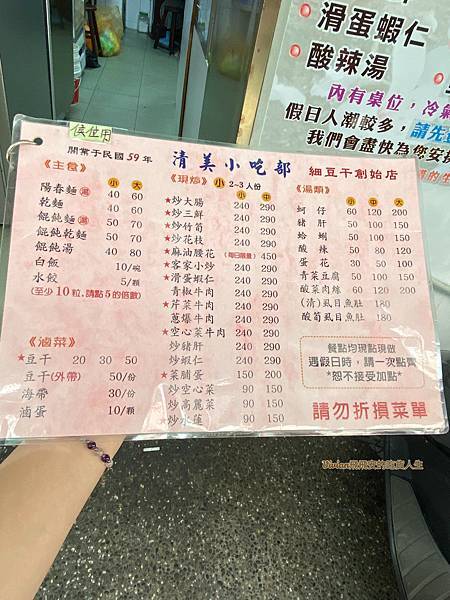 滑蛋蝦仁
酸辣湯
內有桌位，冷氣
假日人潮較多，請先
我們會盡快為您安
侯使用
開業于民國 59 年 清美小吃部 細豆干創始店
《主食》 小 大
陽春麵(湯) 40 60
乾麵 40 60
餛飩麵(湯) 50 70
餛飩乾麵 50 70
餛飩湯 40 80
白飯 10/碗
水餃 5/顆
(至少10粒,請點5的倍數)
《滷菜》
★豆干 20 30 50
豆干(外帶) 50/份
海帶 30/份
滷蛋 10/顆
《現炒》 小 2-3人份 小 中
★炒大腸 240 290
★炒三鮮 240 290
★炒竹筍 240 290
★炒花枝 240 290
★麻油腰花(每日限量) 450
★客家小炒 240 290
★滑蛋蝦仁 240 290
青椒牛肉 240 290
★芹菜牛肉 240 290
蔥爆牛肉 240 290
★空心菜牛肉 240 290
炒豬肝 240 290
炒蝦仁 240 290
★菜脯蛋 150 200
炒空心菜 90 150
炒高麗菜 90 150
炒水蓮 90 150
《湯類》 小 中 大
蚵仔 60 120 200
豬肝 50 100 180
蛤蜊 50 100 180
酸辣 50 80 120
蛋花 30 50 100
青菜豆腐 50 100 150
酸菜肉絲 60 120 150
(清)虱目魚肚 180
酸筍虱目魚肚 180
餐點均現點現做
遇假日時，請一次點齊
*恕不接受加點*
請勿折損菜單
Vivian飛飛安的吃貨人生